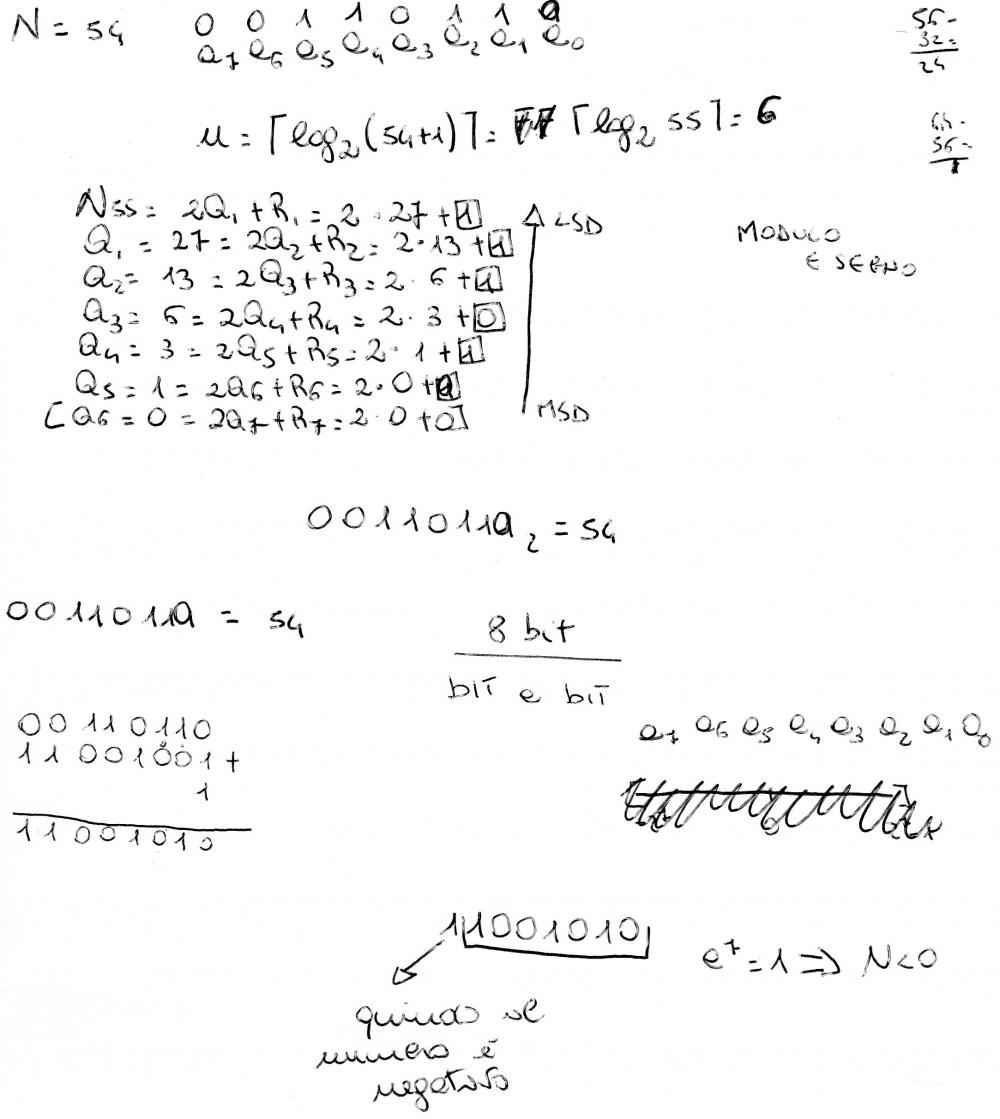 N = 54 0 0 1 1 0 1 1 0
a7 a6 a5 a4 a3 a2 a1 a0
56-
32=
24
n = ⌈log2(54+1)⌉ = ⌈log2 55⌉ = 6
64-
56-
N55 = 2Q1 + R1 = 2 · 27 + 1
Q1 = 27 = 2Q2 + R2 = 2 · 13 + 1
Q2 = 13 = 2Q3 + R3 = 2 · 6 + 1
Q3 = 6 = 2Q4 + R4 = 2 · 3 + 0
Q4 = 3 = 2Q5 + R5 = 2 · 1 + 1
Q5 = 1 = 2Q6 + R6 = 2 · 0 +
[Q6 = 0 = 2Q7 + R7 = 2 · 0 + 0]
LSD
MSD
MODULO
E SEGNO
00110110 2 = 54
00110110 = 54
8 bit
bit e bit
00110110
11001001+
1
11001010
a7 a6 a5 a4 a3 a2 a1 a0
11001010
a7 = 1 ⇒ N<0
quindi il
numero è
negativo